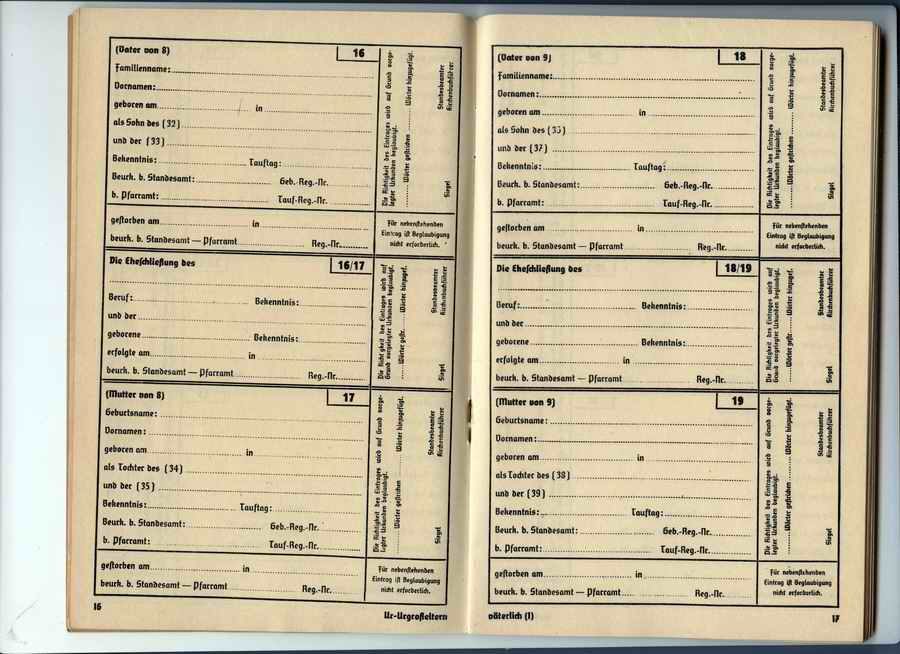 (Vater von 8) 16
Familienname:
Vornamen:
geboren am in
als Sohn des (32)
und der (33)
Bekenntnis: Tauftag:
Beurk. b. Standesamt: Geb.-Reg.-Nr.
b. Pfarramt: Tauf-Reg.-Nr.
Die Richtigkeit des Eintrages wird auf Grund vorge-
legter Urkunden beglaubigt.
Wörter gestrichen Wörter hinzugefügt.
Siegel Standesbeamter
Kirchenbuchführer
gestorben am in
beurk. b. Standesamt — Pfarramt Reg.-Nr.
Für nebenstehenden
Eintrag ist Beglaubigung
nicht erforderlich.
Die Eheschließung des 16/17
Beruf: Bekenntnis:
und der
geborene Bekenntnis:
erfolgte am in
beurk. b. Standesamt — Pfarramt Reg.-Nr.
Die Richtigkeit des Eintrages wird auf
Grund vorgelegter Urkunden beglaubigt.
Wörter gestr. Wörter hinzugef.
Siegel Standesbeamter
Kirchenbuchführer
(Mutter von 8) 17
Geburtsname:
Vornamen:
geboren am in
als Tochter des (34)
und der (35)
Bekenntnis: Tauftag:
Beurk. b. Standesamt: Geb.-Reg.-Nr.
b. Pfarramt: Tauf-Reg.-Nr.
Die Richtigkeit des Eintrages wird auf Grund vorge-
legter Urkunden beglaubigt.
Wörter gestrichen Wörter hinzugefügt.
Siegel Standesbeamter
Kirchenbuchführer
gestorben am in
beurk. b. Standesamt — Pfarramt Reg.-Nr.
Für nebenstehenden
Eintrag ist Beglaubigung
nicht erforderlich.
16 Ur-Urgroßeltern
(Vater von 9) 18
Familienname:
Vornamen:
geboren am in
als Sohn des (35)
und der (37)
Bekenntnis: Tauftag:
Beurk. b. Standesamt: Geb.-Reg.-Nr.
b. Pfarramt: Tauf-Reg.-Nr.
Die Richtigkeit des Eintrages wird auf Grund vorge-
legter Urkunden beglaubigt.
Wörter gestrichen Wörter hinzugefügt.
Siegel Standesbeamter
Kirchenbuchführer
gestorben am in
beurk. b. Standesamt — Pfarramt Reg.-Nr.
Für nebenstehenden
Eintrag ist Beglaubigung
nicht erforderlich.
Die Eheschließung des 18/19
Beruf: Bekenntnis:
und der
geborene Bekenntnis:
erfolgte am in
beurk. b. Standesamt — Pfarramt Reg.-Nr.
Die Richtigkeit des Eintrages wird auf
Grund vorgelegter Urkunden beglaubigt.
Wörter gestr. Wörter hinzugef.
Siegel Standesbeamter
Kirchenbuchführer
(Mutter von 9) 19
Geburtsname:
Vornamen:
geboren am in
als Tochter des (38)
und der (39)
Bekenntnis: Tauftag:
Beurk. b. Standesamt: Geb.-Reg.-Nr.
b. Pfarramt: Tauf-Reg.-Nr.
Die Richtigkeit des Eintrages wird auf Grund vorge-
legter Urkunden beglaubigt.
Wörter gestrichen Wörter hinzugefügt.
Siegel Standesbeamter
Kirchenbuchführer
gestorben am in
beurk. b. Standesamt — Pfarramt Reg.-Nr.
Für nebenstehenden
Eintrag ist Beglaubigung
nicht erforderlich.
väterlich (1) 17